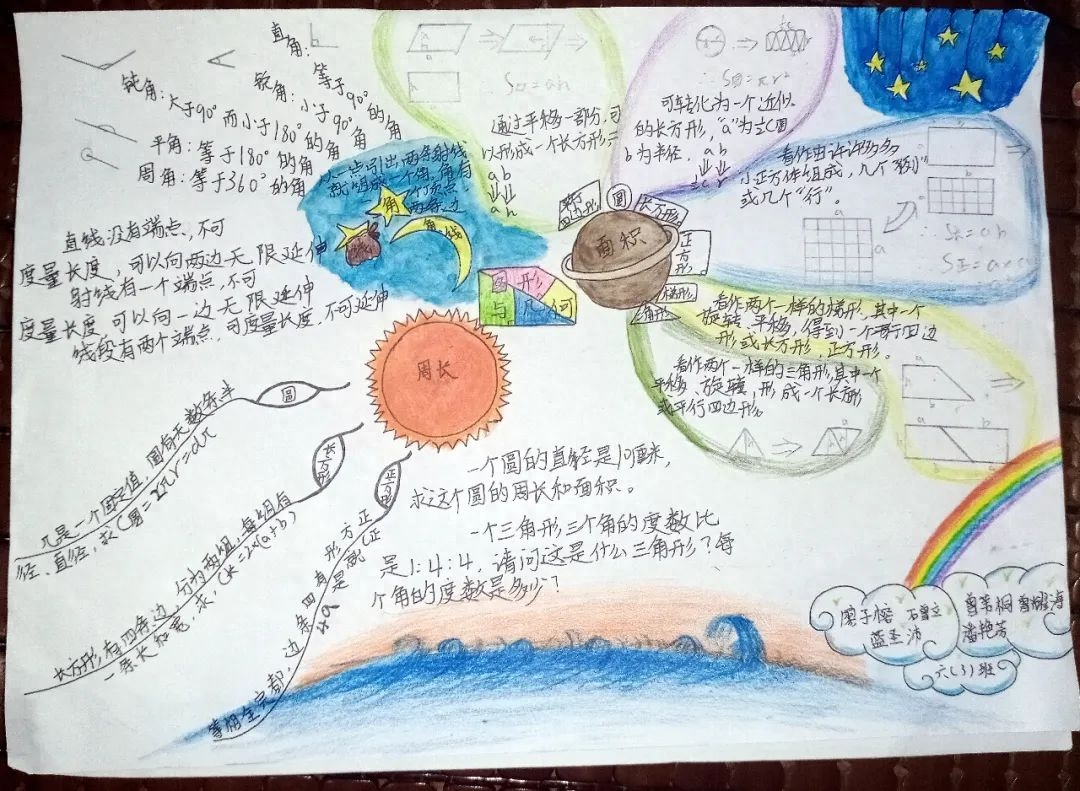 直角:
等于90°
钝角:大于90°而小于180°的角
锐角:小于90°的角
平角:等于180°的角
周角:等于360°的角
直线没有端点,不可
度量长度,可以向两边无限延伸
射线有一个端点,不可
度量长度 可以向一边无限延伸
线段有两个端点,可度量长度,不可延伸
一点引出两条射线
就组成一个角,角有
一个顶点
两条边
角
线
角线
图形
与几何
通过平移一部分,可
以形成一个长方形
a b
a h
S=ah
可转化为一个近似
的长方形,"a"为½C圆
b为半径.
a b
½C r
∴S圆=πr²
看作由许许多多
小正方体组成,几个"列"
或几个"行"。
面积
圆
长方形
正方形
梯形
三角形
看作两个一样的梯形,其中一个
旋转、平移,得到一个平行四边
形或长方形,正方形。
看作两个一样的三角形,其中一个
平移、旋转,形成一个长方形
或平行四边形。
周长
圆
π是一个固定值,圆有无数条半
径、直径,求C圆=2πr=dπ
长方形
长方形,有四条边,分为两组,每组有
一条长和宽,求,C长=2×(a+b)
正方形
正方形有四条边,都完全相等
C正就是4a
一个圆的直径是10厘米,
求这个圆的周长和面积。
一个三角形三个角的度数比
是1:4:4,请问这是什么三角形?每
个角的度数是多少?
六(3)班